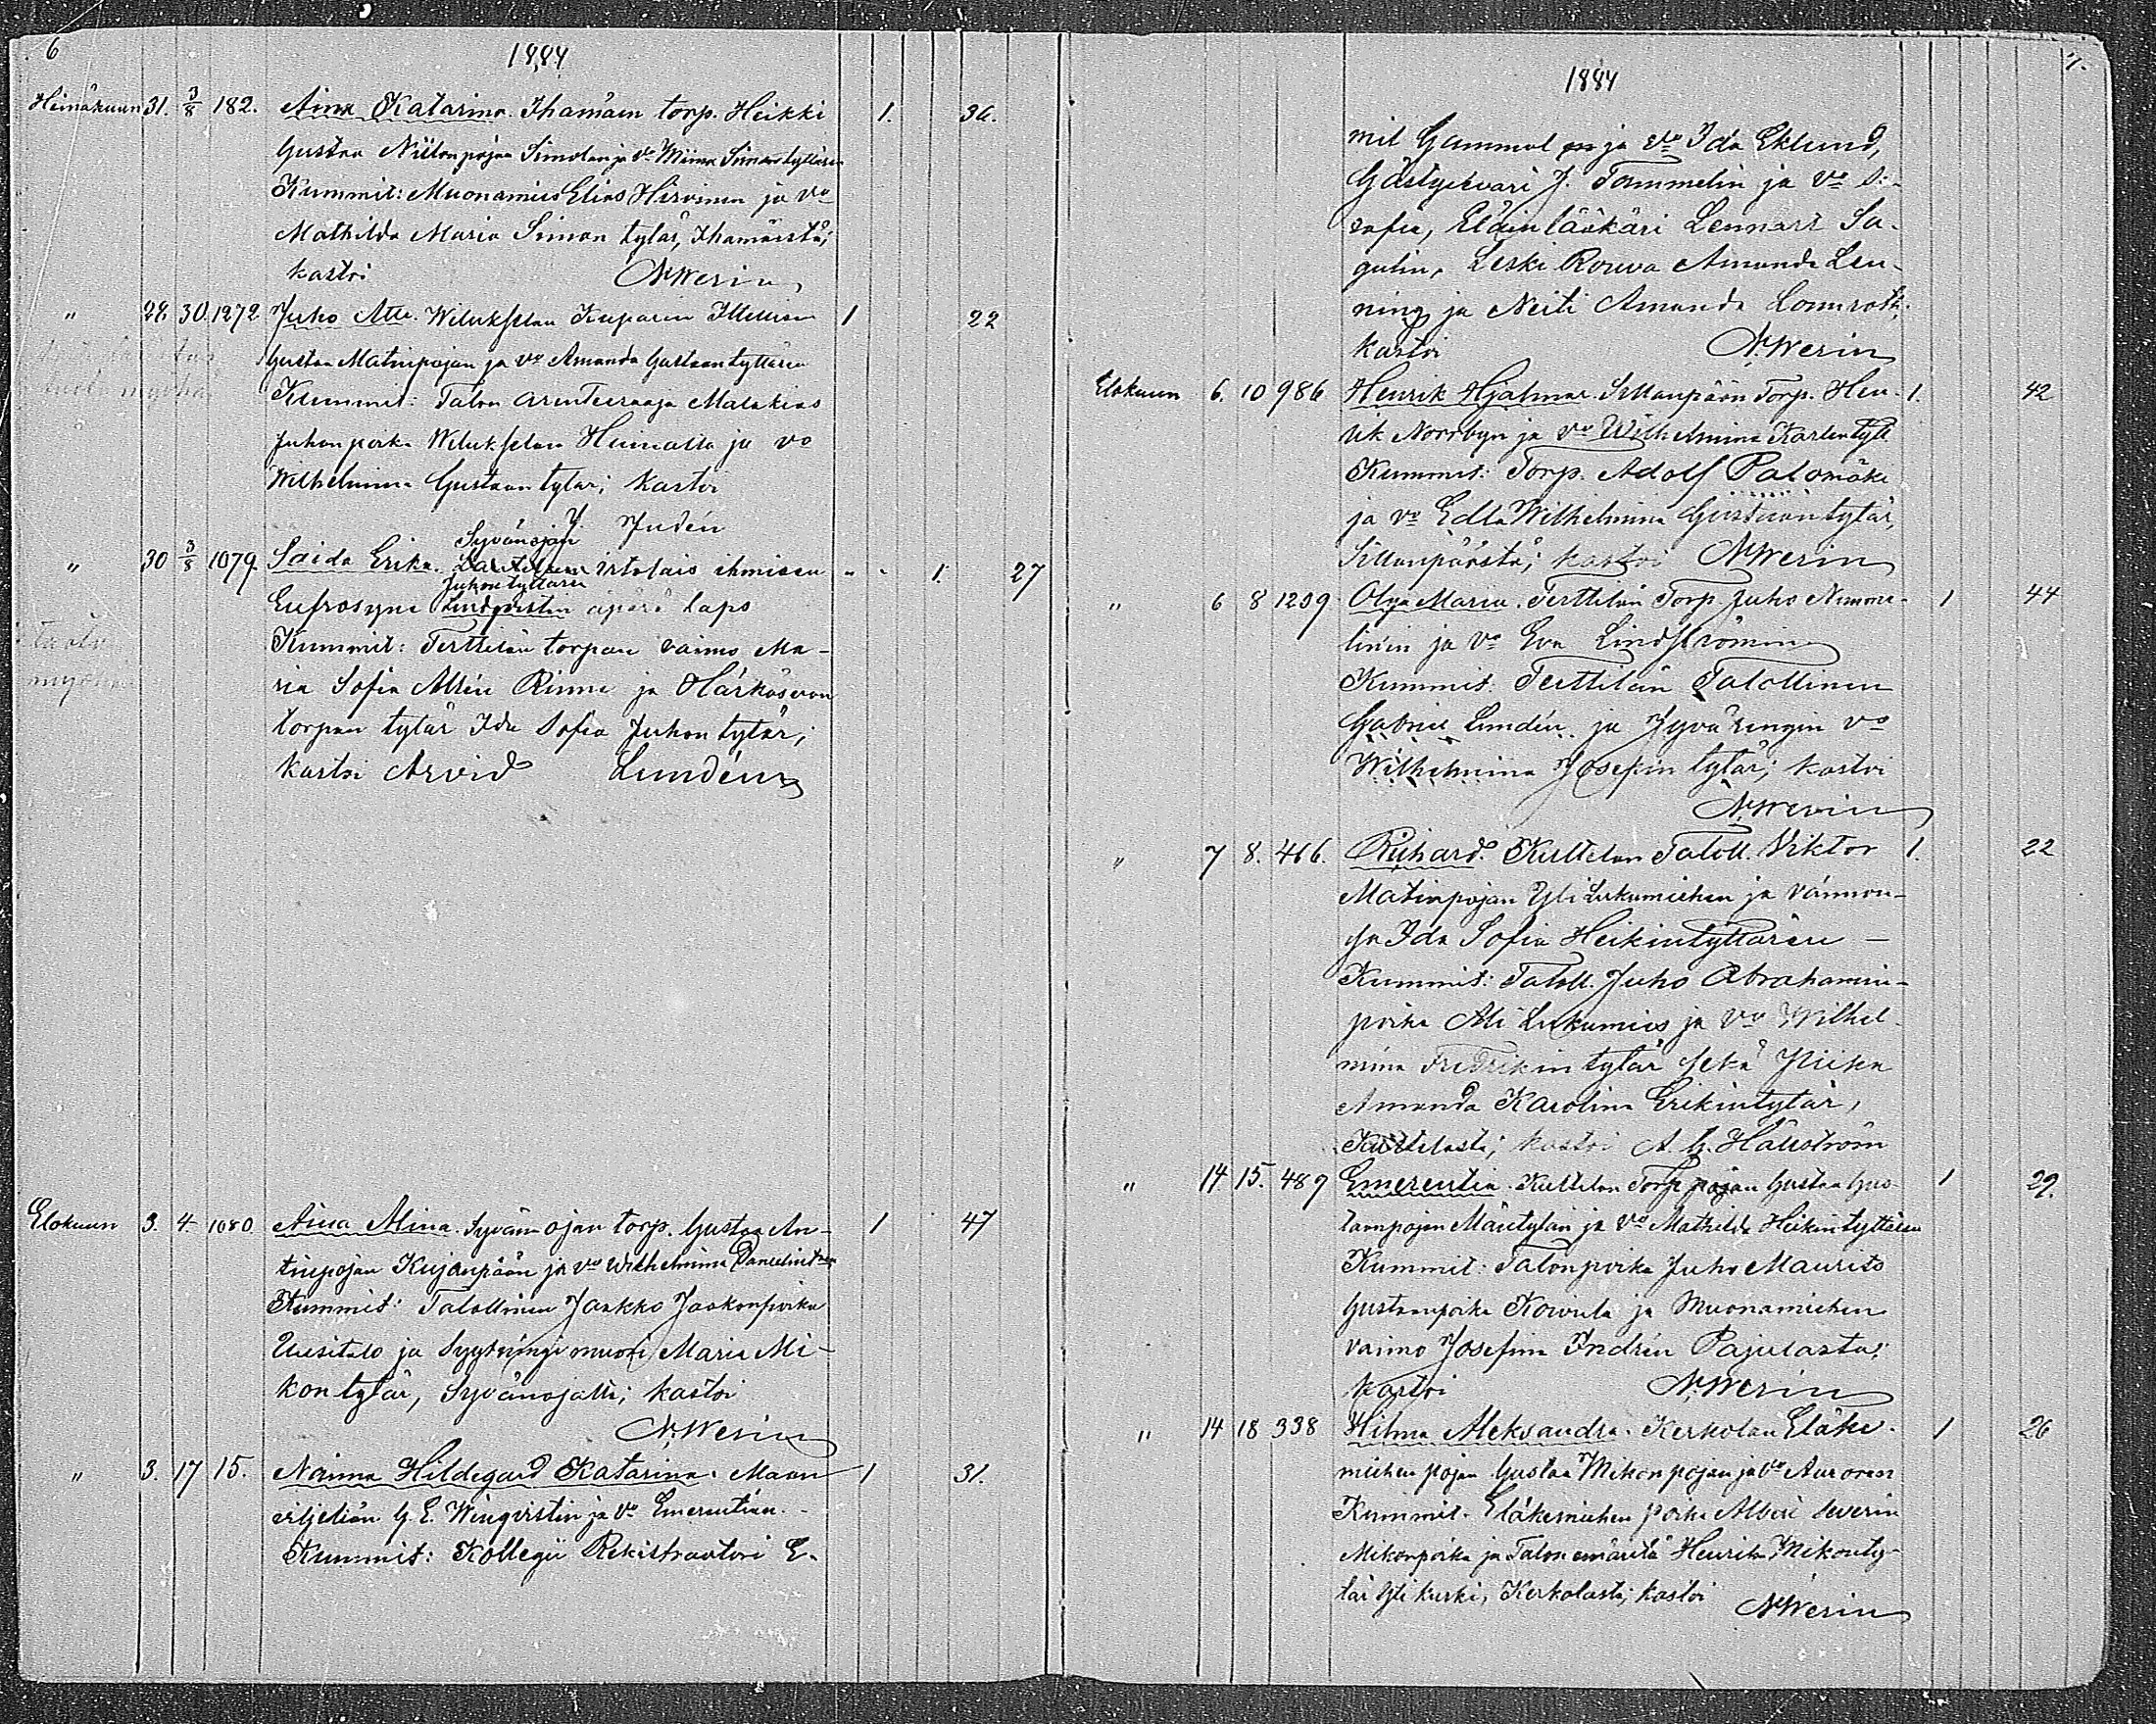 6
1884
Heinäkuun 31. 3/8 182. Aina Katarina. Ihamäen torp. Heikki 1. 36.
Gustaa Niilonpojan Simolan ja vo Miina Simontyttären
Kummit: Muonamies Elias Hirvinen ja vo
Mathilda Maria Simon tytär, Ihamäestä;
kastoi N. Werin
" 28. 30. 1272 Juho Atte. Wilukselan Kuparin Itellisen 1 22
Gustaa Matinpojan ja vo Amanda Gustaantyttären
Kummit: Talon arenteeraaja Malakias
Juhonpoika Wilukselan Heimalta ja vo
Wilhelmina Gustaan tytär; kastoi
J. Judén
Syvänojan
" 30 3/8 1079. Saida Erika. irtolais ihmisen - - 1. 27
Juhontyttären
Eufrosyne Lindqvistin äpärä laps
tuotu Kummit: Terttilän torpan vaimo Ma-
myöhä ria Sofia Altén Rinne ja Härkäsuon
torpan tytär Ida Sofia Juhon tytär;
kastoi Arvid Lundén
Elokuun 3. 4. 1080. Aina Alina. Syvän ojan torp. Gustaa An- 1 47
tinpojan Kujanpään ja vo Wilhelmina Danielint:en
Kummit: Talollinen Jaakko Jaakonpoika
Uusitalo ja Syytinki muori Maria Mi-
kon tytär, Syvänojalta; kastoi
N. Werin
" 3. 17 15. Naima Hildegard Katarina. Maan 1 31.
viljeliän G. E. Winqvistin ja vo Emerentian.
Kummit: Kollegii Rekistraatori E-
7.
1884
mil Gammal ja vo Ida Eklund,
Gästgivari J. Tammelin ja vo S:
zofia, Eläinlääkäri Lennart Sa-
gulin, Leski Rouva Amanda Len-
ning ja Neiti Amanda Lönnroth;
kastoi N. Werin
Elokuun 6. 10 986 Henrik Hjalmar. Sillanpään Torp. Hen- 1. 42
rik Norrbyn ja vo Wilhelmina Karlentytt
Kummit: Torp. Adolf Palomäki
ja vo Edla Wilhelmina Gustaan tytär,
Sillanpäästä; kastoi N. Werin
" 6 8 1209 Olga Maria. Terttilän Torp. Juho Numme- 1 44
linin ja vo Eva Lindströmin
Kummit: Terttilän Talollinen
Gabriel Lundén ja Jyvä rengin vo
Wilhelmina Josefin tytär; kastoi
N. Werin
" 7 8. 466. Rikhard. Kuttilan Taloll. Viktor 1. 22
Matinpojan Yli Lukumiehen ja vaimon-
sa Ida Sofia Heikintyttären —
Kummit: Taloll. Juho Abrahamin-
poika Ali Lukumies ja vo Wilhel-
mina Fredrikin tytär sekä Piika
Amanda Karolina Erikintytär,
Kuttilasta; kastoi A. G. Hällström
" 14. 15. 489 Emerentia. Kuttilan Torp. pojan Gustaa Gus- 1 29.
taanpojan Mäntylän ja vo Mathilda Heikintyttären
Kummit: Talonpoika Juho Maurits
Gustaanpoika Koivula ja Muonamiehen
vaimo Josefina Indrén Pajulasta;
kastoi N. Werin
" 14 18 338 Hilma Aleksandra. Kerkolan Eläke- 1 26
miehen pojan Gustaa Mikonpojan ja vo Auroran
Kummit. Eläkemiehen poika Albert Severin
Mikonpoika ja Talon emäntä Henrika Mikonty-
tär Yli kurki, Kerkolasta; kastoi N. Werin